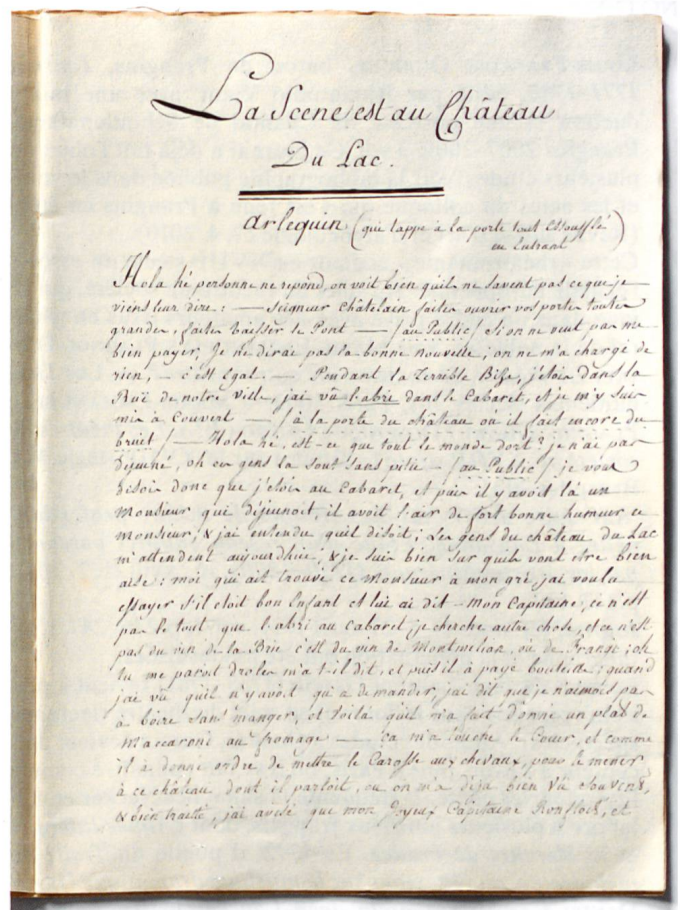 La Scene est au Château
Du Lac.
arlequin (qui tappe à la porte tout Essoufflé
en Entrant)
Hola hé personne ne repond, on voit bien quils ne savent pas ce que je
viens leur dire : — Seigneur Châtelain faites ouvrir vos portes toutes
grandes, faites baisser le Pont — /au Public/ Si on ne veut pas me
bien payer, Je ne dirai pas la bonne nouvelle ; on ne m'a chargé de
rien, — c'est Egal — Pendant la Terrible Bise, j'etois dans la
Ruë de notre Ville, jai vû l'abri dans le Cabaret, et je m'y suis
mis à Couvert — /à la porte du château où il fait encore du
bruit/ — Hola hé, est-ce que tout le monde dort ? je n'ai pas
dejeuné, oh ces gens la sont sans pitié — /au Public/ je vous
disois donc que j'etois au Cabaret, et puis il y avoit là un
Monsieur qui déjeunoit, il avoit l'air de fort bonne humeur ce
Monsieur, & jai entendu quil disoit ; Les gens du château du Lac
m'attendent aujourdhui, & je suis bien sur quils vont etre bien
aise : moi qui ait trouvé ce Monsieur à mon gré jai voulu
essayer s'il etoit bon Enfant et lui ai dit — Mon Capitaine, ce n'est
pas le tout que l'abri au Cabaret, je cherche autre chose, et ce n'est
pas du vin de la Brie c'est du vin de Montmelian, ou de Frangi ; oh
tu me parois droles m'a t-il dit, et puis il à payé bouteille ; quand
jai vû quil n'y avoit qu'a demander, jai dit que je n'aimois pas
à boire sans manger, et voilà quil m'a fait donné un plat de
Maccarond au fromage — ça m'a touché le Cœur, et comme
il à donné ordre de mettre le Carosse aux chevaux, pour le mener
à ce château dont il parloit, ou on m'a déja bien vû souvent,
& bien traitté, jai avisé que mon Joyeux Capitaine Ronfloit, et